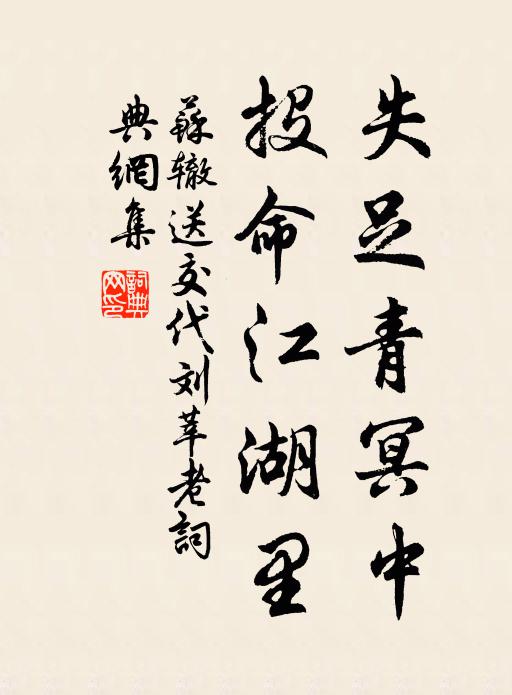 失足青冥中
投命江湖里
蘇辙送交代刘莘老詞
典網集
詞典網印